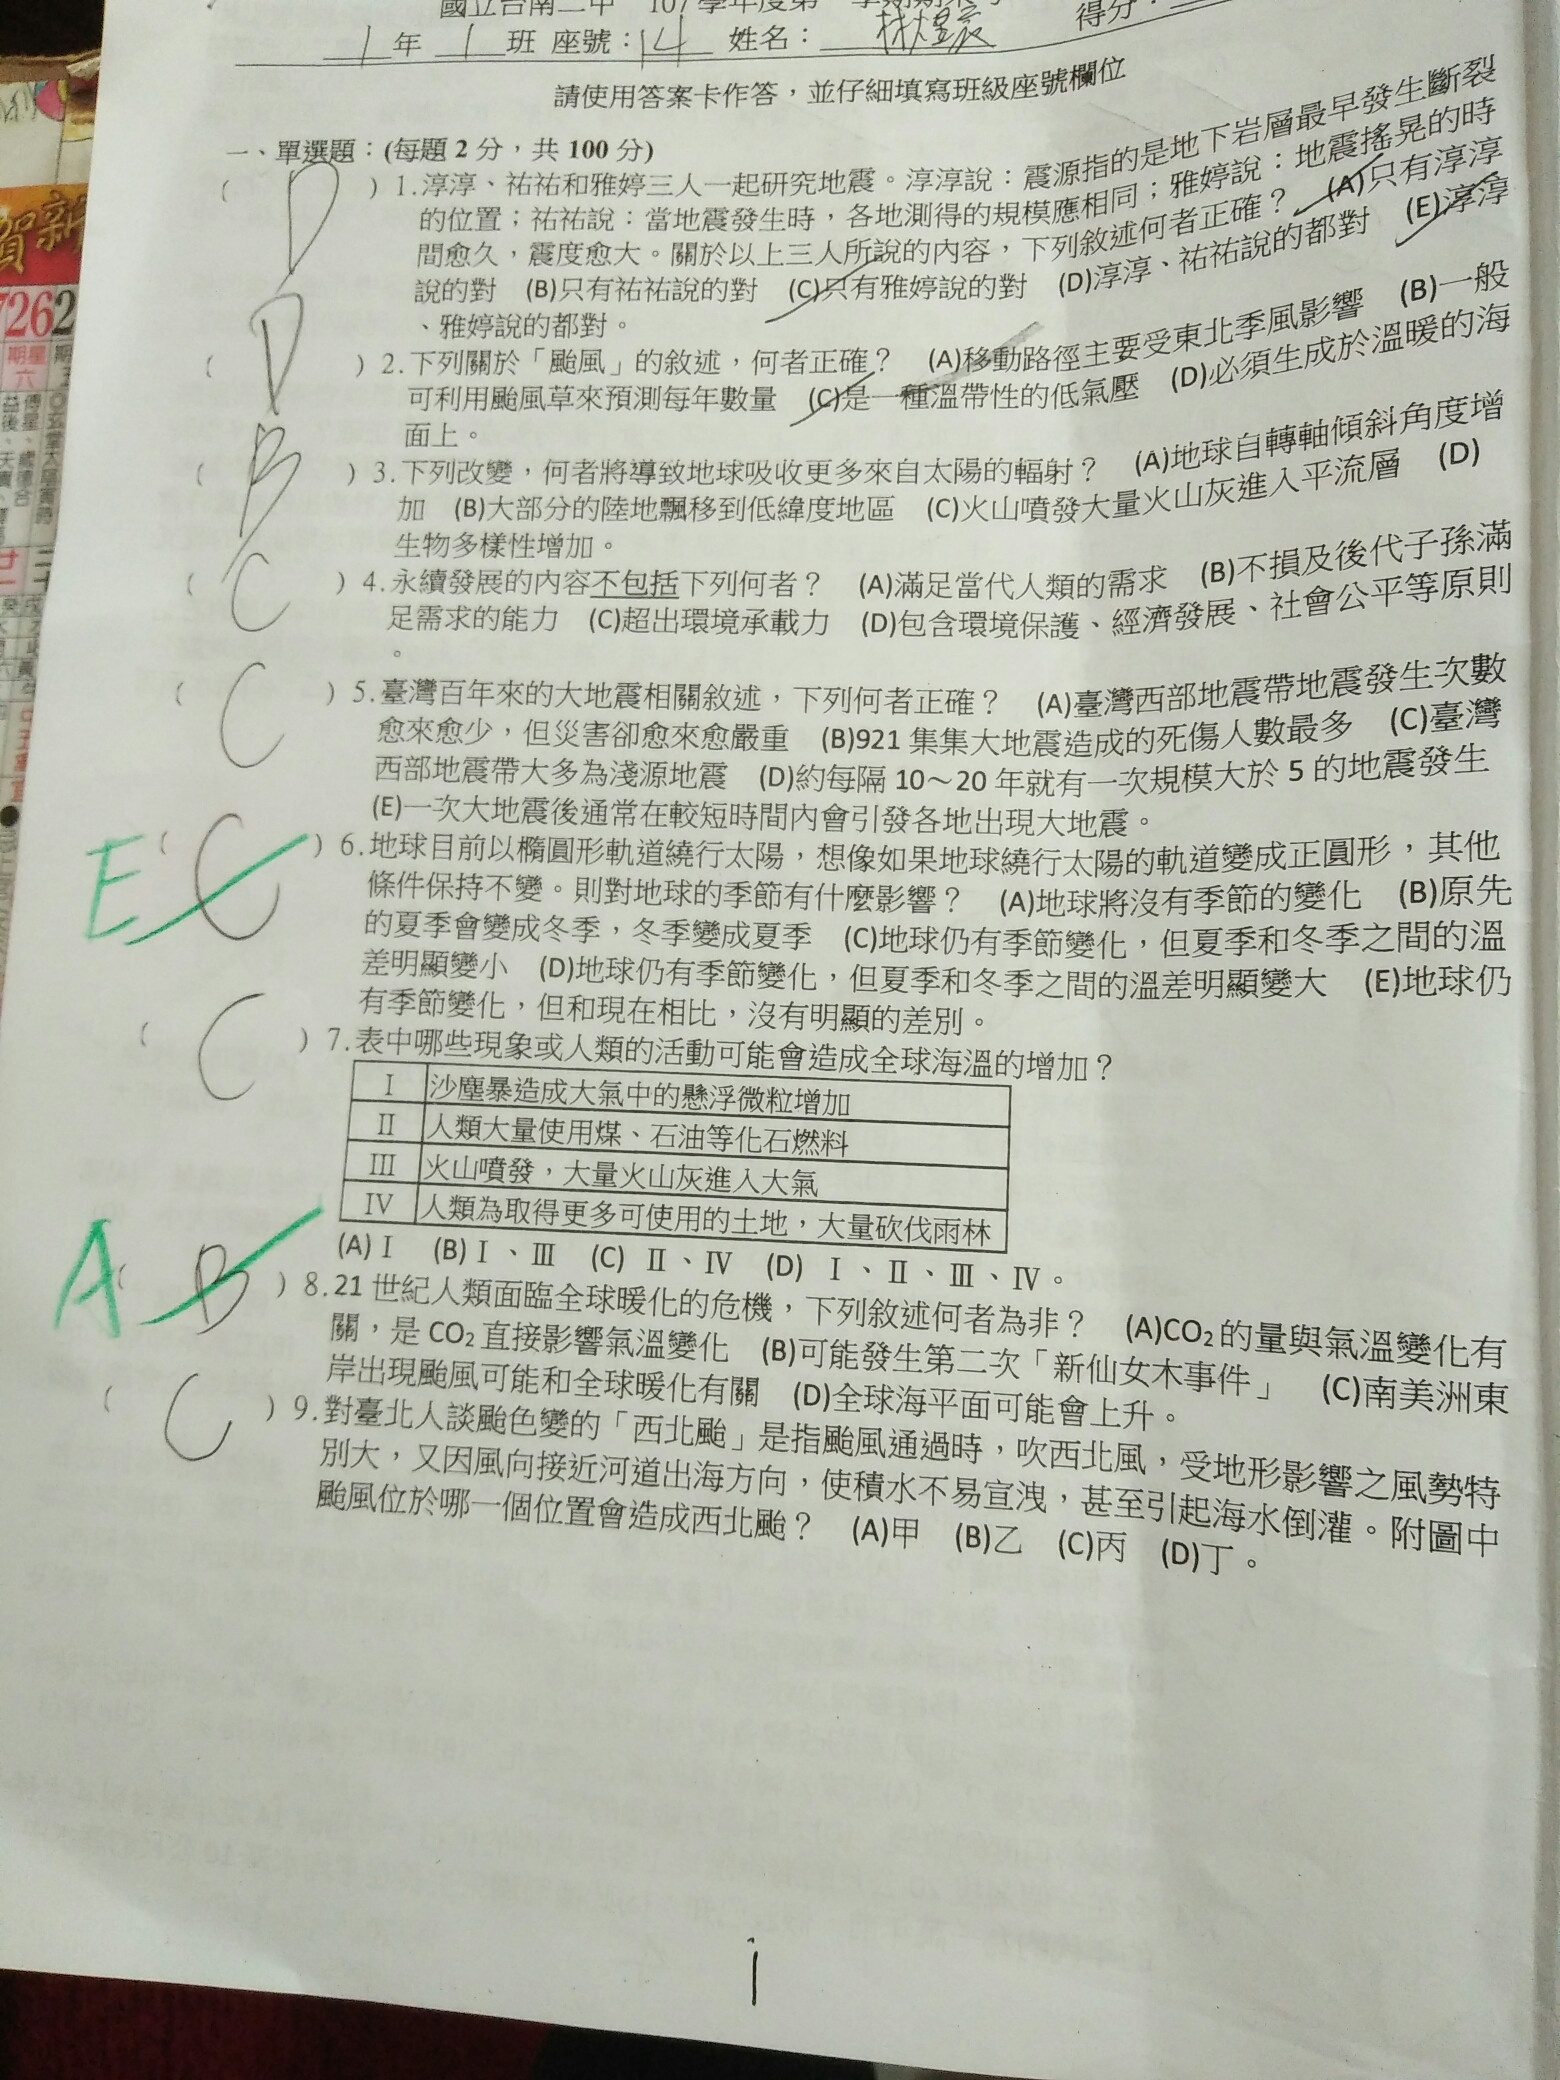 國立台南二中 107學年度第 學期期末
1 年 1 班 座號：14 姓名： 得分：
請使用答案卡作答，並仔細填寫班級座號欄位
一、單選題：(每題 2 分，共 100 分)
( D ) 1.淳淳、祐祐和雅婷三人一起研究地震。淳淳說：震源指的是地下岩層最早發生斷裂
的位置；祐祐說：當地震發生時，各地測得的規模應相同；雅婷說：地震搖晃的時
間愈久，震度愈大。關於以上三人所說的內容，下列敘述何者正確？ (A)只有淳淳
說的對 (B)只有祐祐說的對 (C)只有雅婷說的對 (D)淳淳、祐祐說的都對 (E)淳淳
、雅婷說的都對。
( D ) 2.下列關於「颱風」的敘述，何者正確？ (A)移動路徑主要受東北季風影響 (B)一般
可利用颱風草來預測每年數量 (C)是一種溫帶性的低氣壓 (D)必須生成於溫暖的海
面上。
( B ) 3.下列改變，何者將導致地球吸收更多來自太陽的輻射？ (A)地球自轉軸傾斜角度增
加 (B)大部分的陸地飄移到低緯度地區 (C)火山噴發大量火山灰進入平流層 (D)
生物多樣性增加。
( C ) 4.永續發展的內容不包括下列何者？ (A)滿足當代人類的需求 (B)不損及後代子孫滿
足需求的能力 (C)超出環境承載力 (D)包含環境保護、經濟發展、社會公平等原則
。
( C ) 5.臺灣百年來的大地震相關敘述，下列何者正確？ (A)臺灣西部地震帶地震發生次數
愈來愈少，但災害卻愈來愈嚴重 (B)921 集集大地震造成的死傷人數最多 (C)臺灣
西部地震帶大多為淺源地震 (D)約每隔 10～20 年就有一次規模大於 5 的地震發生
(E)一次大地震後通常在較短時間內會引發各地出現大地震。
E ( C ) 6.地球目前以橢圓形軌道繞行太陽，想像如果地球繞行太陽的軌道變成正圓形，其他
條件保持不變。則對地球的季節有什麼影響？ (A)地球將沒有季節的變化 (B)原先
的夏季會變成冬季，冬季變成夏季 (C)地球仍有季節變化，但夏季和冬季之間的溫
差明顯變小 (D)地球仍有季節變化，但夏季和冬季之間的溫差明顯變大 (E)地球仍
有季節變化，但和現在相比，沒有明顯的差別。
( C ) 7.表中哪些現象或人類的活動可能會造成全球海溫的增加？
I 沙塵暴造成大氣中的懸浮微粒增加
II 人類大量使用煤、石油等化石燃料
III 火山噴發，大量火山灰進入大氣
IV 人類為取得更多可使用的土地，大量砍伐雨林
(A) Ⅰ (B) Ⅰ、Ⅲ (C) Ⅱ、Ⅳ (D) Ⅰ、Ⅱ、Ⅲ、Ⅳ。
A ( B ) 8.21 世紀人類面臨全球暖化的危機，下列敘述何者為非？ (A)CO₂ 的量與氣溫變化有
關，是 CO₂ 直接影響氣溫變化 (B)可能發生第二次「新仙女木事件」 (C)南美洲東
岸出現颱風可能和全球暖化有關 (D)全球海平面可能會上升。
( C ) 9.對臺北人談颱色變的「西北颱」是指颱風通過時，吹西北風，受地形影響之風勢特
別大，又因風向接近河道出海方向，使積水不易宣洩，甚至引起海水倒灌。附圖中
颱風位於哪一個位置會造成西北颱？ (A)甲 (B)乙 (C)丙 (D)丁。
1
賀新
26
期星
六